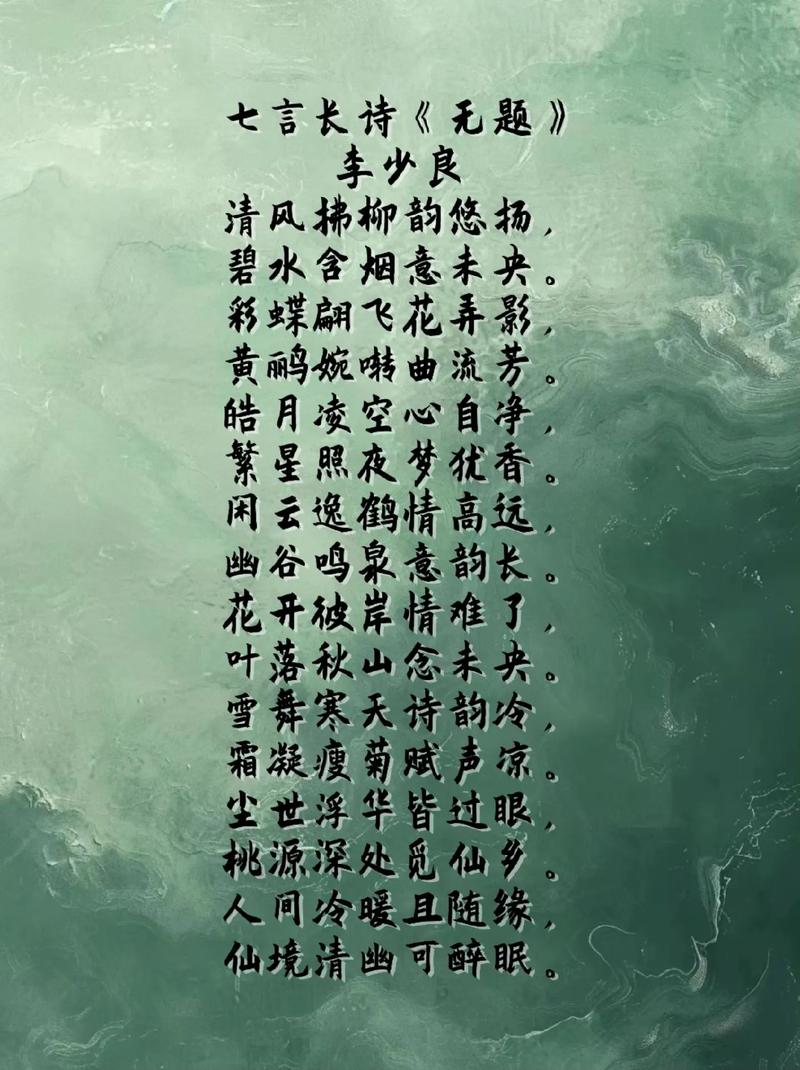 七言长诗《无题》
李少良
清风拂柳韵悠扬，
碧水含烟意未央。
彩蝶翩飞花弄影，
黄鹂婉啭曲流芳。
皓月凌空心自净，
繁星照夜梦犹香。
闲云逸鹤情高远，
幽谷鸣泉意韵长。
花开彼岸情难了，
叶落秋山念未央。
雪舞寒天诗韵冷，
霜凝瘦菊赋声凉。
尘世浮华皆过眼，
桃源深处觅仙乡。
人间冷暖且随缘，
仙境清幽可醉眠。